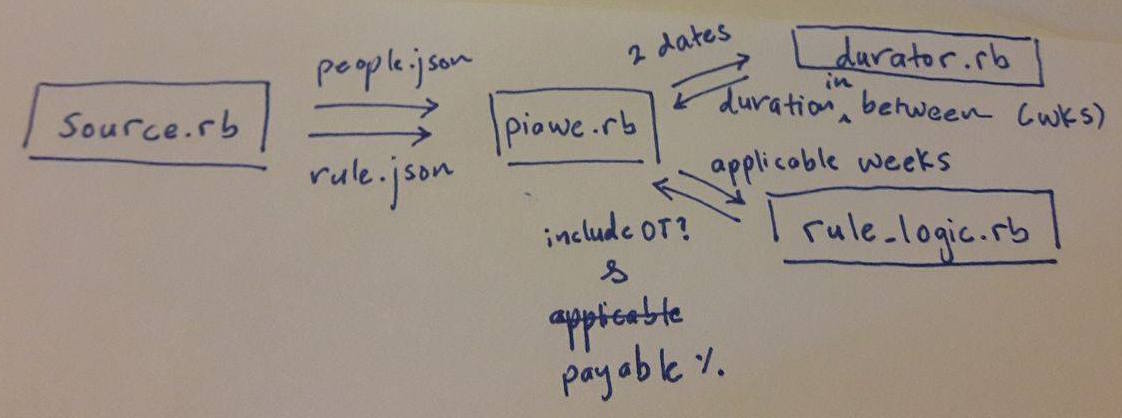 people.json
Source.rb
rule.json
piawe.rb
2 dates
durator.rb
duration in between (wks)
applicable weeks
rule_logic.rb
include OT?
&
applicable
payable %.